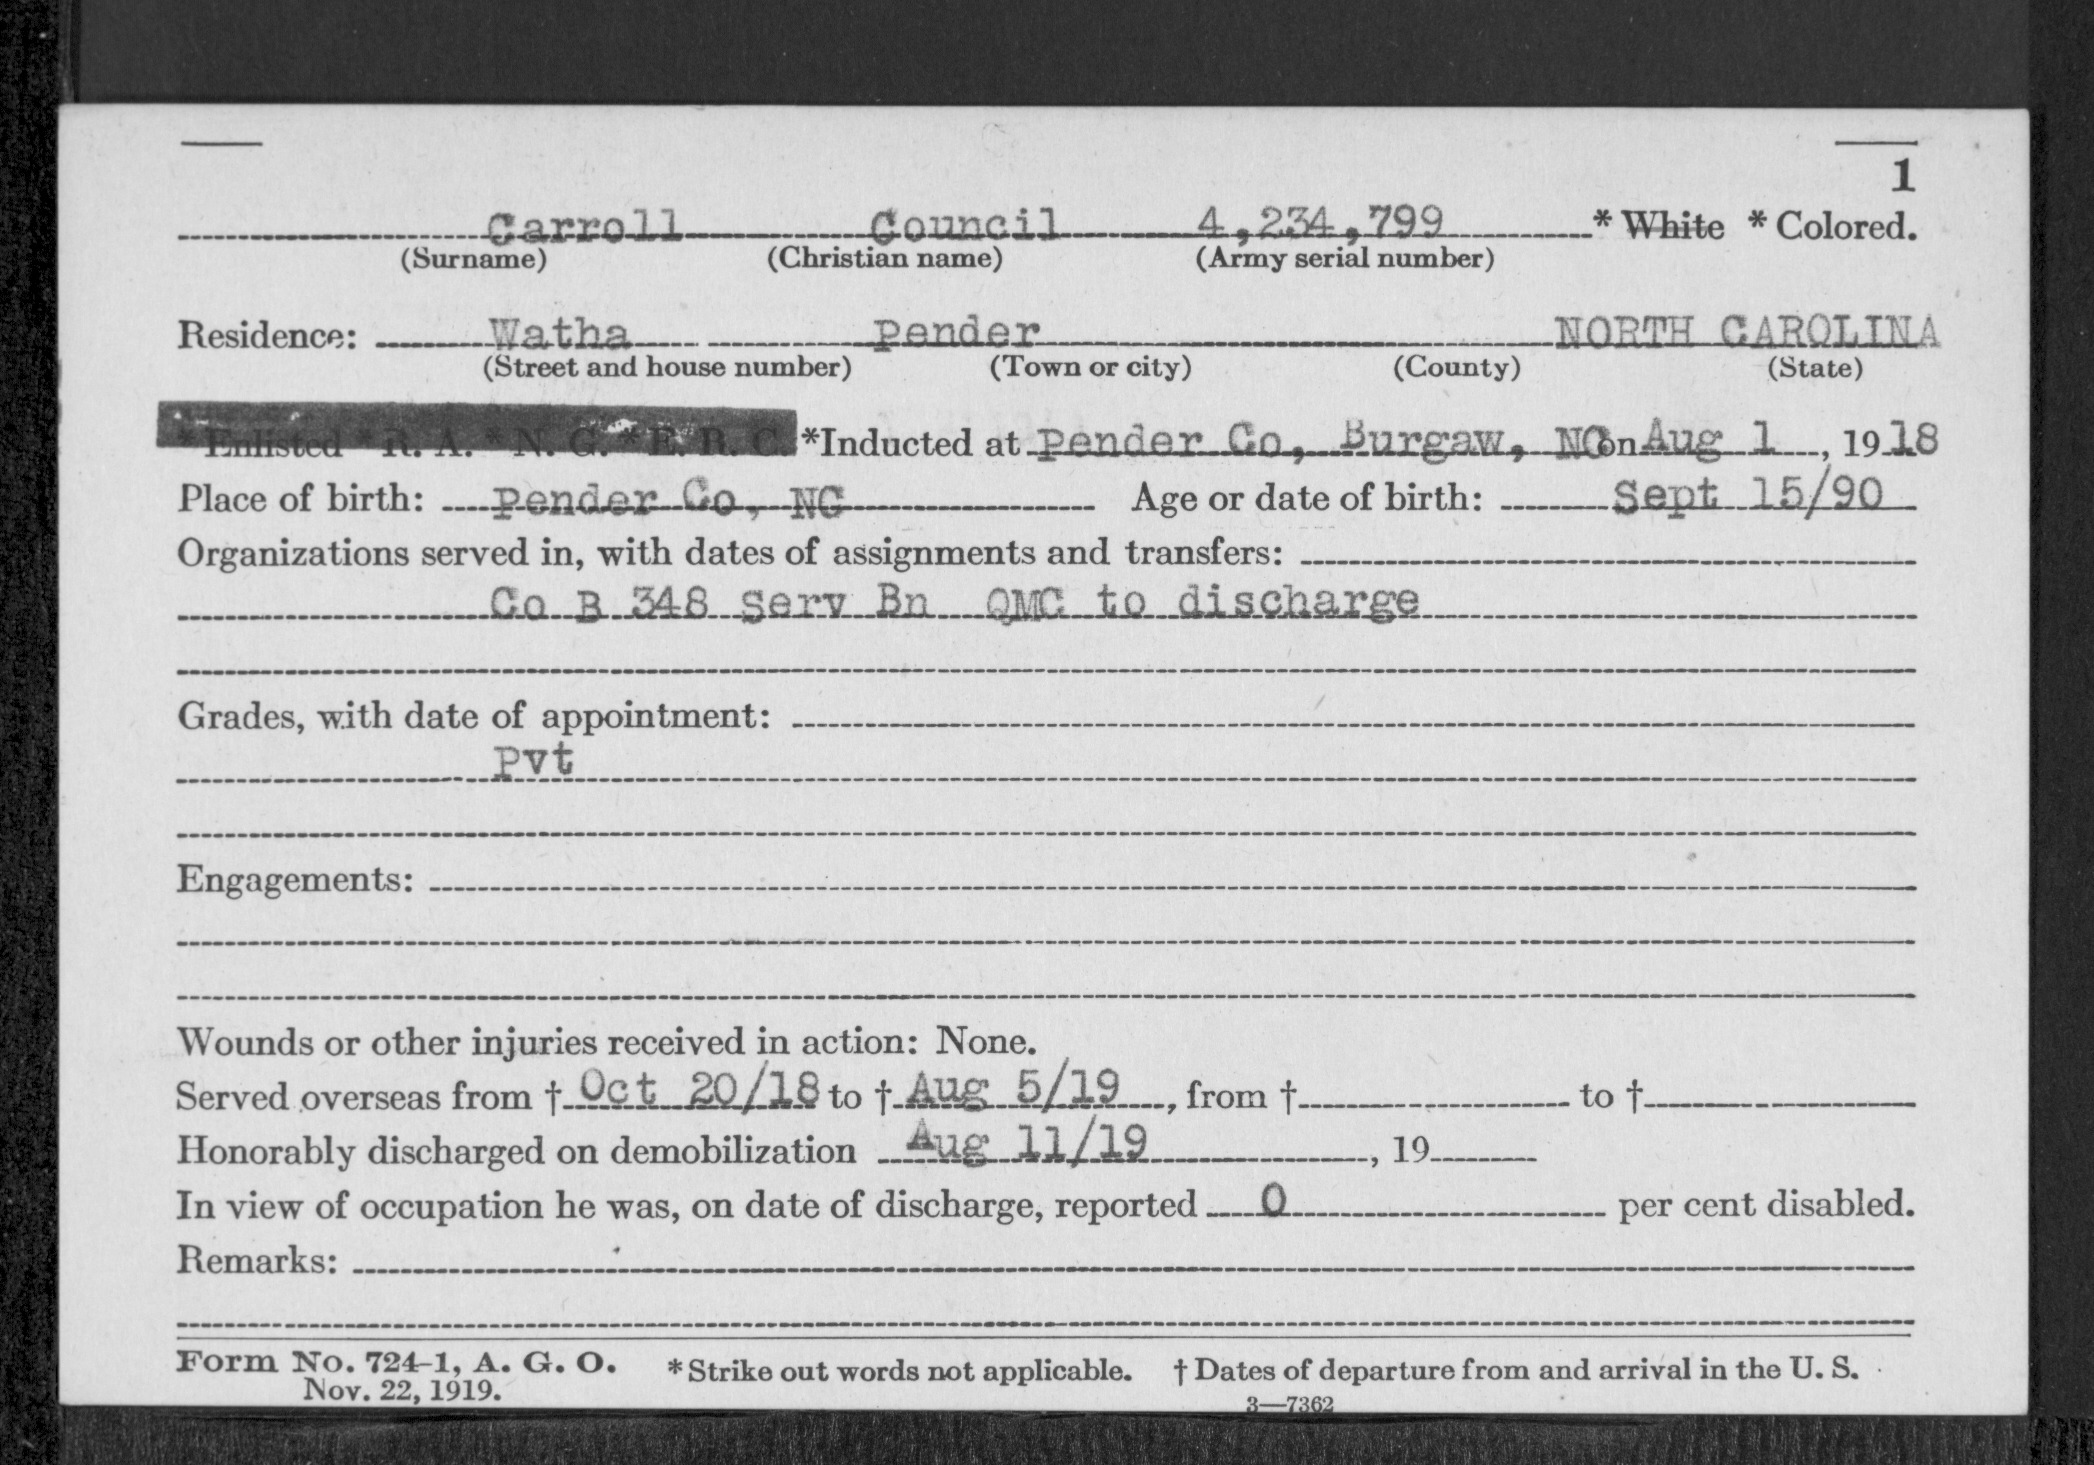 1
Carroll Council 4,234,799 * White * Colored.
(Surname) (Christian name) (Army serial number)
Residence: Watha Pender NORTH CAROLINA
(Street and house number) (Town or city) (County) (State)
* Enlisted * R. A. * N. G. * E. R. C. *Inducted at Pender Co, Burgaw, NC on Aug 1, 1918
Place of birth: Pender Co, NC Age or date of birth: Sept 15/90
Organizations served in, with dates of assignments and transfers:
Co B 348 Serv Bn QMC to discharge
Grades, with date of appointment:
Pvt
Engagements:
Wounds or other injuries received in action: None.
Served overseas from † Oct 20/18 to † Aug 5/19, from † to †
Honorably discharged on demobilization Aug 11/19, 19
In view of occupation he was, on date of discharge, reported 0 per cent disabled.
Remarks:
Form No. 724-1, A. G. O. * Strike out words not applicable. † Dates of departure from and arrival in the U. S.
Nov. 22, 1919.
3—7362